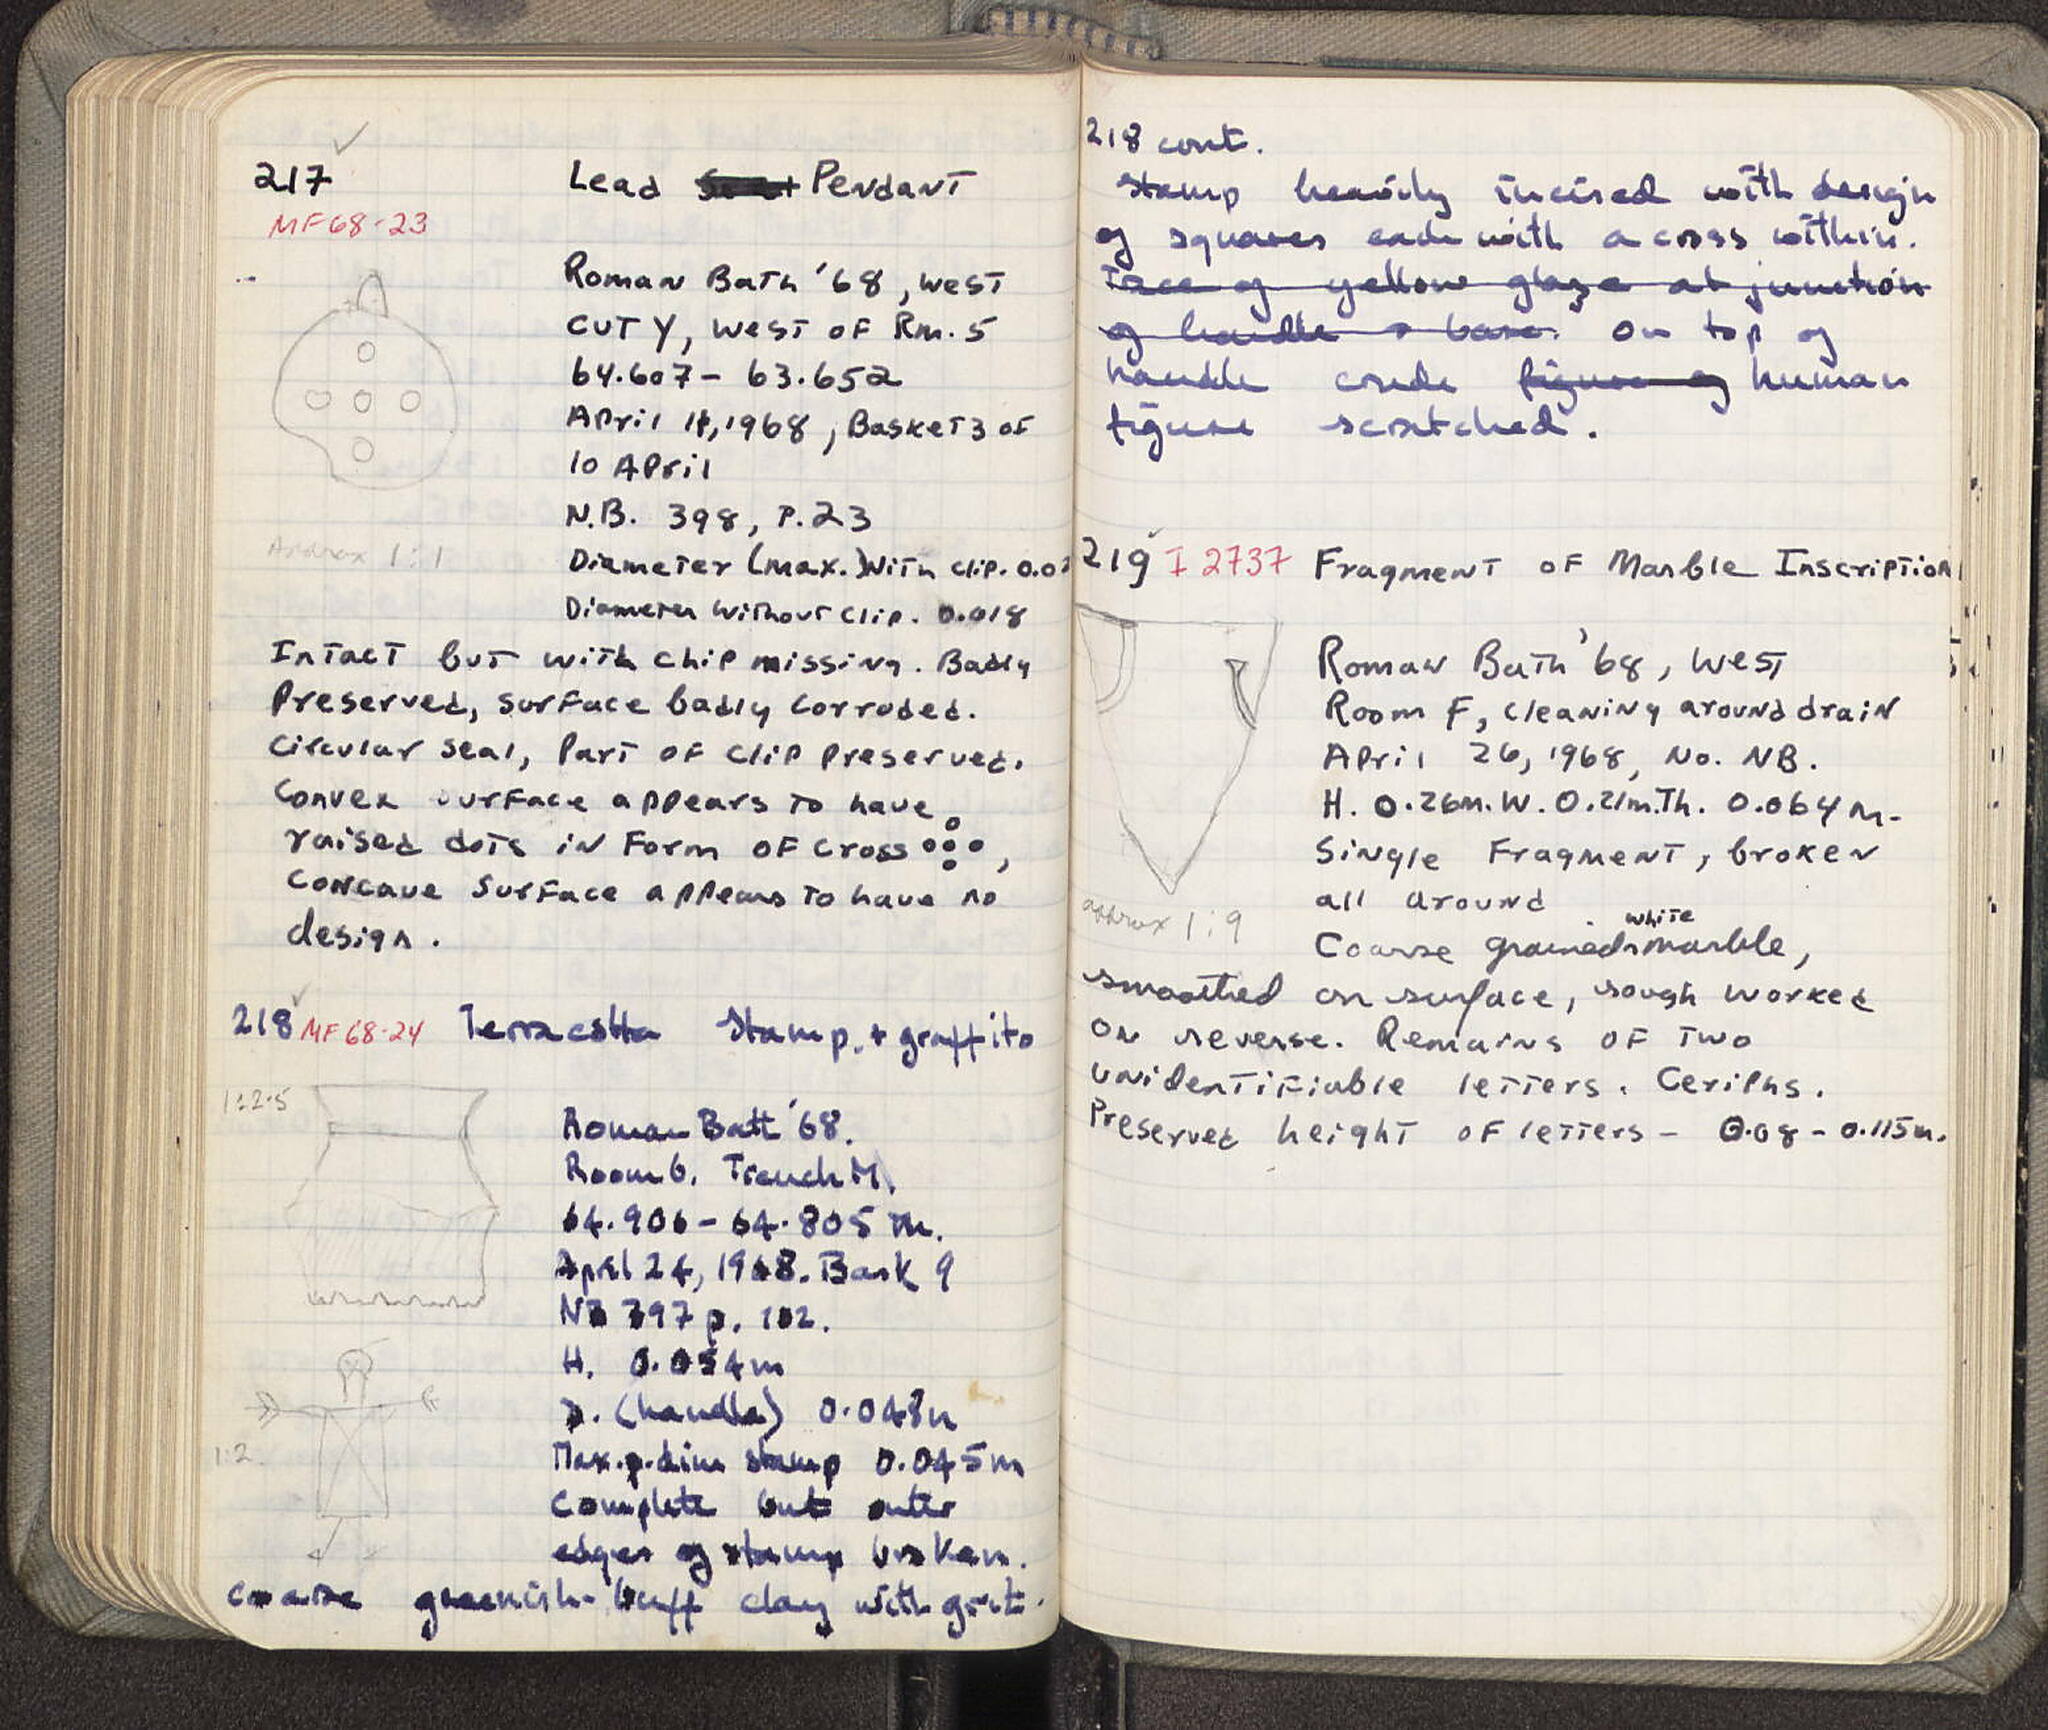 217
MF 68-23
Lead Pendant
Roman Bath '68, West
Cut Y, West of Rm. 5
64.607 - 63.652
April 11, 1968, Basket 3 of
10 April
N.B. 398, P. 23
Approx 1:1
Diameter (max.) With clip. 0.02
Diameter Without clip. 0.018
Intact but with chip missing. Badly
Preserved, surface badly corroded.
Circular seal, Part of clip preserved.
Convex surface appears to have
raised dots in Form of cross ,
Concave surface appears to have no
design.
218 MF 68-24 Terracotta Stamp. + graffito
1:2.5
Roman Bath '68.
Room 6. Trench M.
64.906 - 64.805 m.
April 24, 1968. Bask 9
NB 397 p. 102.
H. 0.054m
D. (handle) 0.048m
1:2
Max. p. dim stamp 0.045m
Complete but outer
edges of stamp broken.
Coarse greenish-buff clay with grit.
218 cont.
Stamp heavily incised with design
of squares each with a cross within.
Trace of yellow glaze at junction
of handle & base. On top of
handle crude figure of human
figure scratched.
219 I 2737 Fragment of Marble Inscription
Roman Bath '68, West
Room F, cleaning around drain
April 26, 1968, No. NB.
H. 0.26m. W. 0.21m. Th. 0.064m.
Single Fragment, broken
all around.
approx 1:9
Coarse grained white marble,
smoothed on surface, rough worked
on reverse. Remains of two
unidentifiable letters. Ceriphs.
Preserved height of letters - 0.08 - 0.115m.